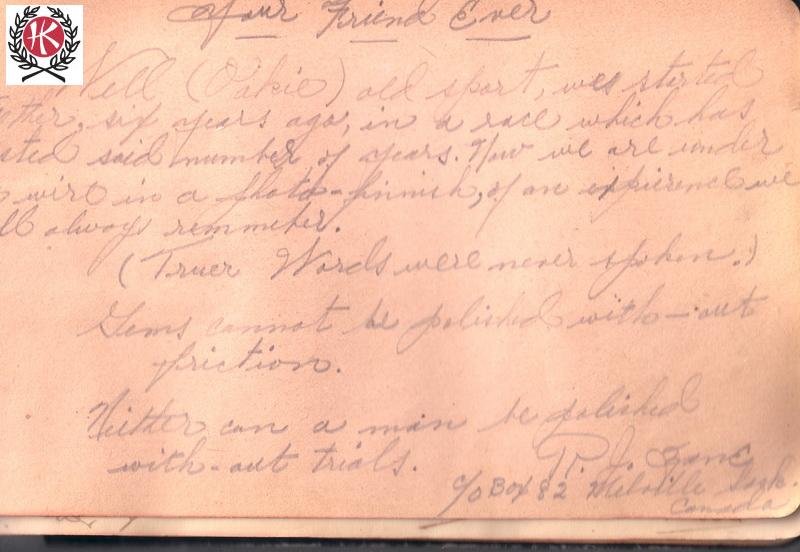 HK
Your Friend Ever
Well (Oakie) old sport, wes sterted
ether, six years ago, in a race which has
sted said number of years. Now we are under
wire in a photo-finnish, of an expierence we
ll always remmeber.
(Truer Words were never spoken.)
Gems cannot be polished with-out
friction.
Neither can a man be polished
with-out trials.
R. J.
c/o Box 82 Melville Sask.
Canada